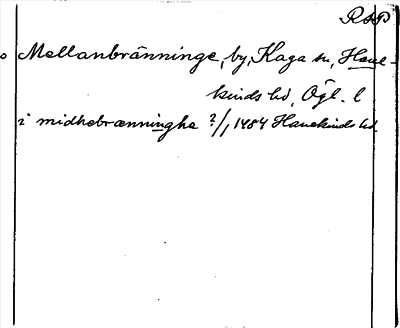 RAP
Mellanbränninge, by, Kaga sn, Hane-
kinds hd, Ögl. l
i midhebrænningha ?/1 1484 Hanekinds hd